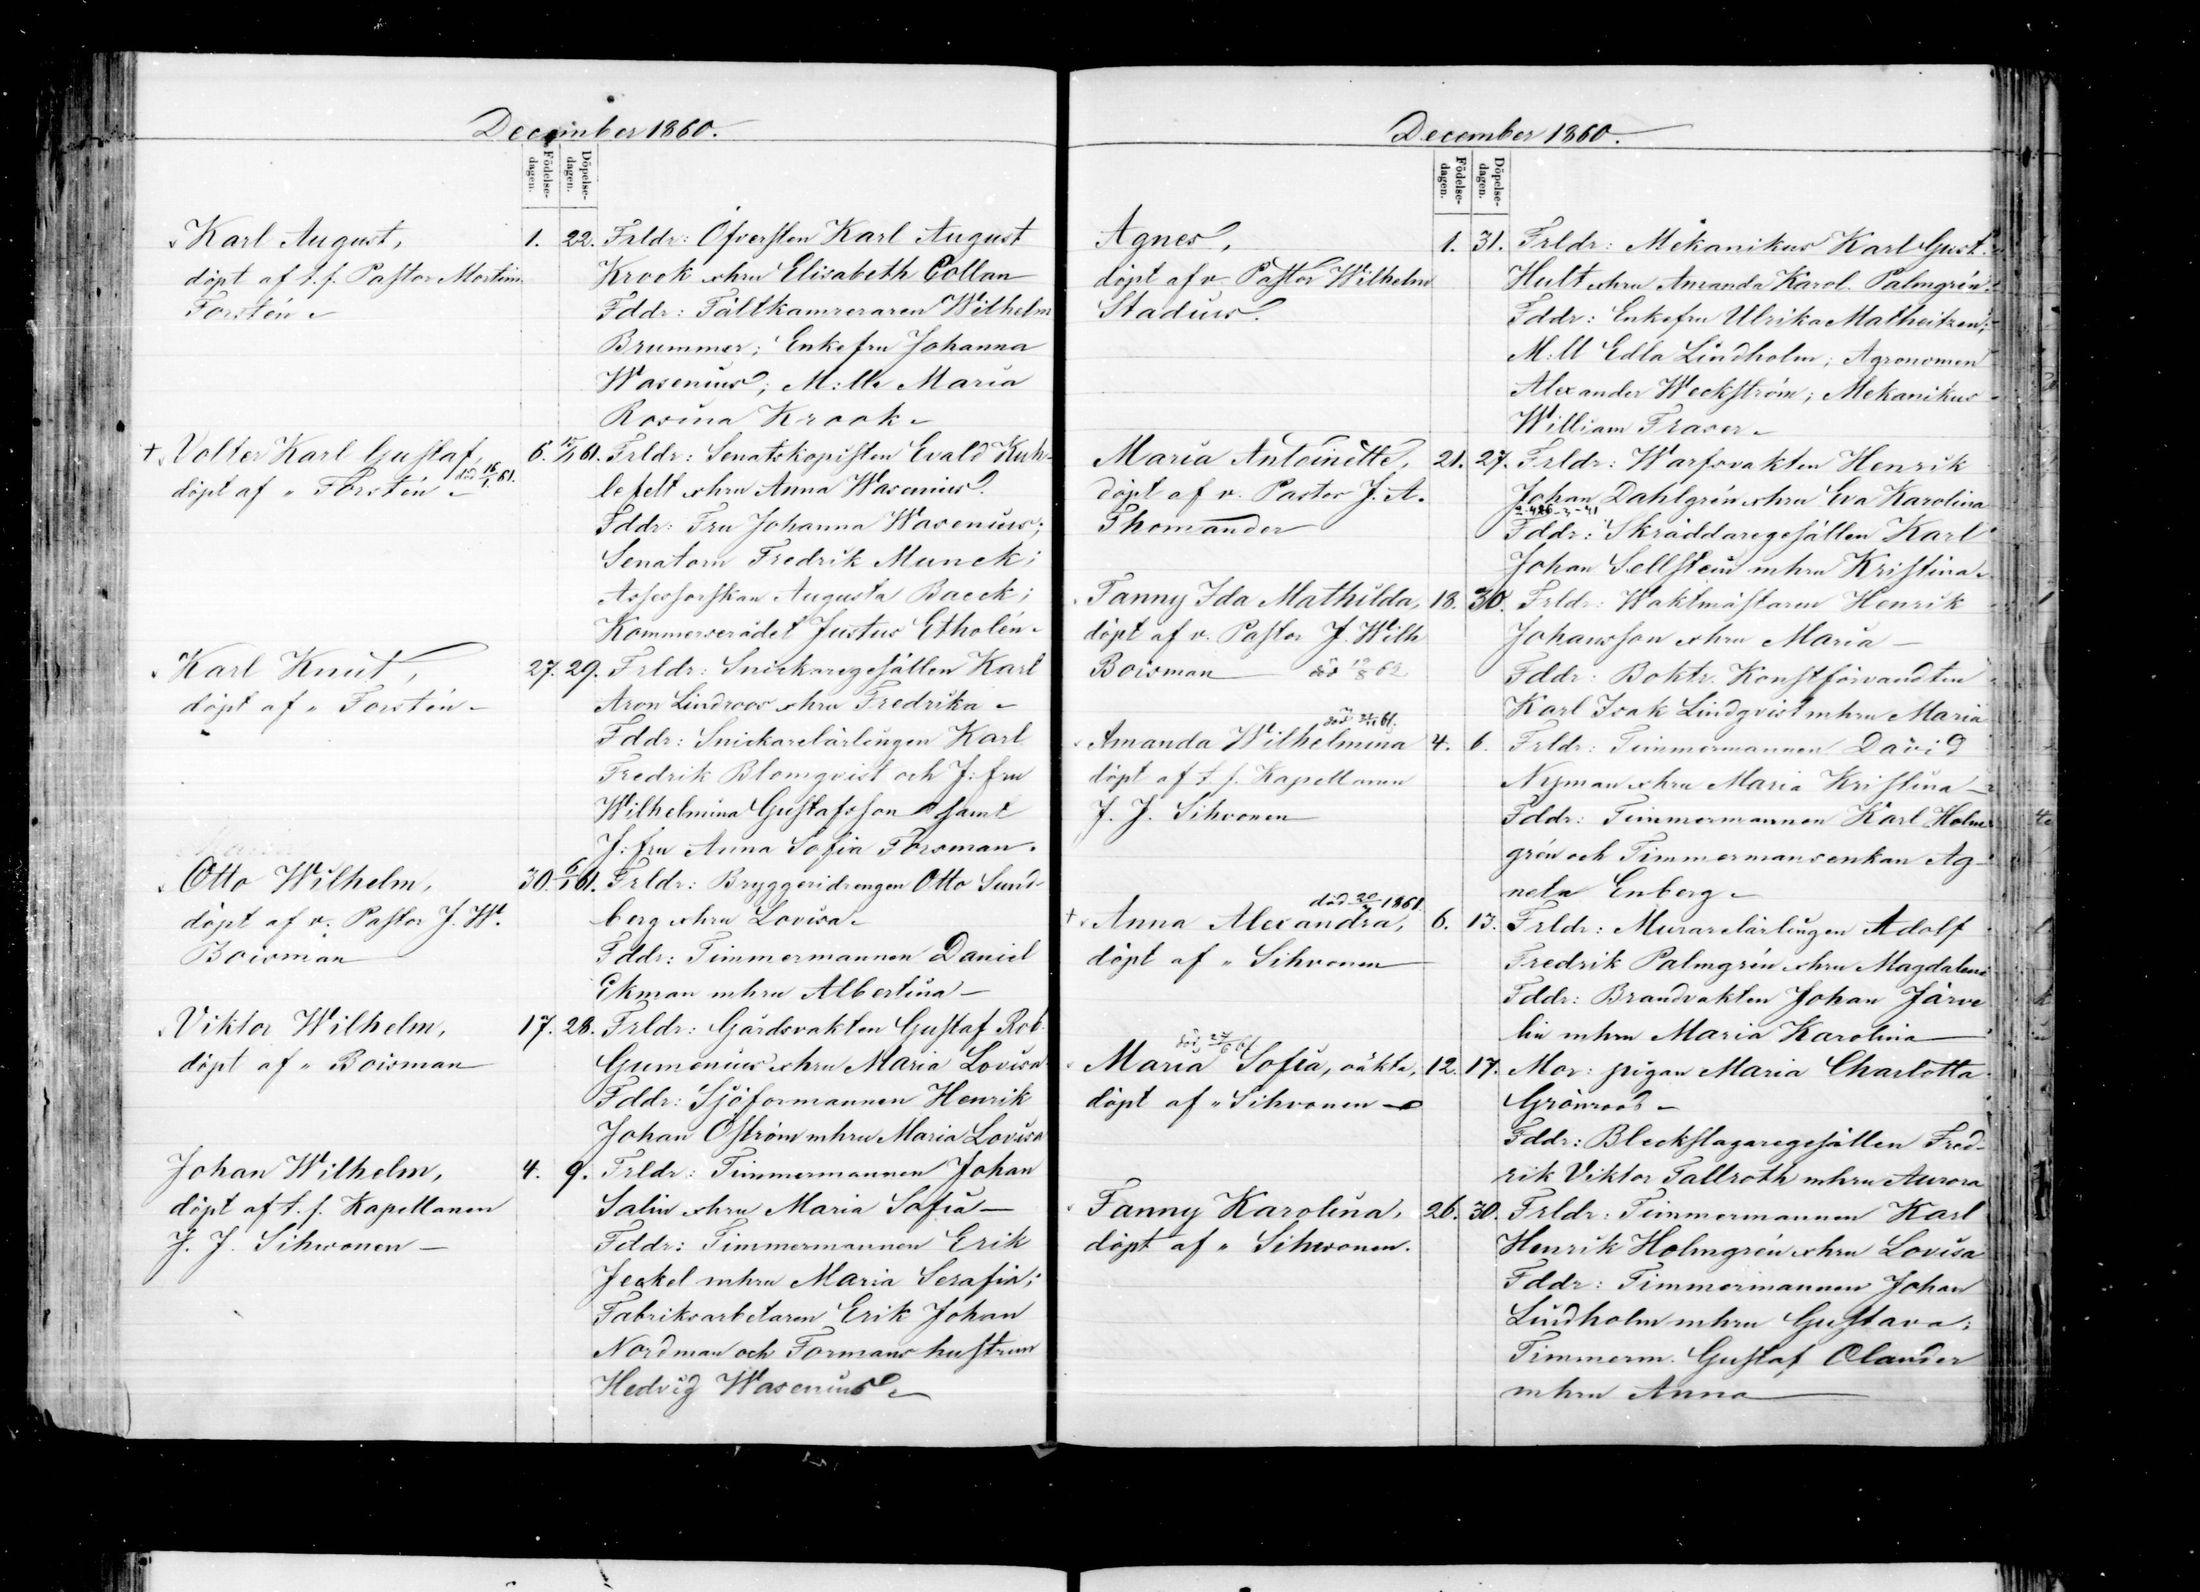 December 1860.
Födelse-
dagen.
Döpelse-
dagen.
Karl August,
döpt af t. f. Pastor Mortim.
Forstén
1. 22.
Frldr: Öfversten Karl August
Krook o hru Elisabeth Collan
Fddr: Fältkamreraren Wilhelm
Brummer; Enkefru Johanna
Wasenius; M:lle Maria
Rosina Krook
+ Volter Karl Gustaf,
död 16/1 61.
döpt af " Forstén
6. 15/1 61.
Frldr: Senatskopisten Evald Kuh-
lefelt o hru Anna Wasenius.
Fddr: Fru Johanna Wasenius;
Senatorn Fredrik Munck;
Assessorskan Augusta Baeck;
Kommerserådet Justus Etholén
Karl Knut,
döpt af " Forstén
27. 29.
Frldr: Snickaregesällen Karl
Aron Lindroos o hru Fredrika
Fddr: Snickarelärlingen Karl
Fredrik Blomqvist och J:fru
Wilhelmina Gustafsson samt
J:fru Anna Sofia Forsman.
Otto Wilhelm,
döpt af v. Pastor J. W.
Boisman
30. 6/1 61.
Frldr: Bryggeridrengen Otto Sund-
berg o hru Lovisa
Fddr: Timmermannen Daniel
Ekman m hru Albertina
Viktor Wilhelm,
döpt af " Boisman
17. 28.
Frldr: Gårdsvakten Gustaf Rob.
Gumenius o hru Maria Lovisa
Fddr: Sjöformannen Henrik
Johan Öström m hru Maria Lovisa
Johan Wilhelm,
döpt af t. f. Kapellanen
J. J. Sihvonen
4. 9.
Frldr: Timmermannen Johan
Salin o hru Maria Sofia
Fddr: Timmermannen Erik
Jeckel m hru Maria Serafia;
Fabriksarbetaren Erik Johan
Nordman och Formans hustrun
Hedvig Wasenius
December 1860.
Födelse-
dagen.
Döpelse-
dagen.
Agnes,
döpt af v. Pastor Wilhelm
Stadius.
1. 31.
Frldr: Mekanikus Karl Gust.
Hult o hru Amanda Karol. Palmgrén
Fddr: Enkefru Ulrika Matheitzen;
M:ll Edla Lindholm; Agronomen
Alexander Weckström; Mekanikus
William Fraser
Maria Antoinette,
döpt af v. Pastor J. A.
Thomander
21. 27.
Frldr: Warfsvakten Henrik
Johan Dahlgrén o hru Eva Karolina
Fddr: Skräddaregesällen Karl
Johan Sellstein m hru Kristina
Fanny Ida Mathilda,
döpt af v. Pastor J. Wilh
Boisman död 19/8 62
18. 30.
Frldr: Waktmästaren Henrik
Johansson o hru Maria
Fddr: Boktr. Konstförvandten
Karl Isak Lindqvist m hru Maria
Amanda Wilhelmina
döpt af t. f. Kapellanen
J. J. Sihvonen
4. 6.
Frldr: Timmermannen David
Nyman o hru Maria Kristina
Fddr: Timmermannen Karl Holm-
grén och Timmermansenkan Ag-
neta Enberg
död 20/7 1861.
+ Anna Alexandra,
döpt af " Sihvonen
6. 13.
Frldr: Murarelärlingen Adolf
Fredrik Palmgrén o hru Magdalena
Fddr: Brandvakten Johan Järve
lin m hru Maria Karolina
död 27/6 61
Maria Sofia, oäkta,
döpt af " Sihvonen
12. 17.
Mor: pigan Maria Charlotta
Grönroos
Fddr: Bleckslagaregesällen Fred-
rik Viktor Tallroth m hru Aurora
Fanny Karolina,
döpt af " Sihvonen.
26. 30.
Frldr: Timmermannen Karl
Henrik Holmgrén o hru Lovisa
Fddr: Timmermannen Johan
Lindholm m hru Gustava;
Timmerm. Gustaf Olander
m hru Anna